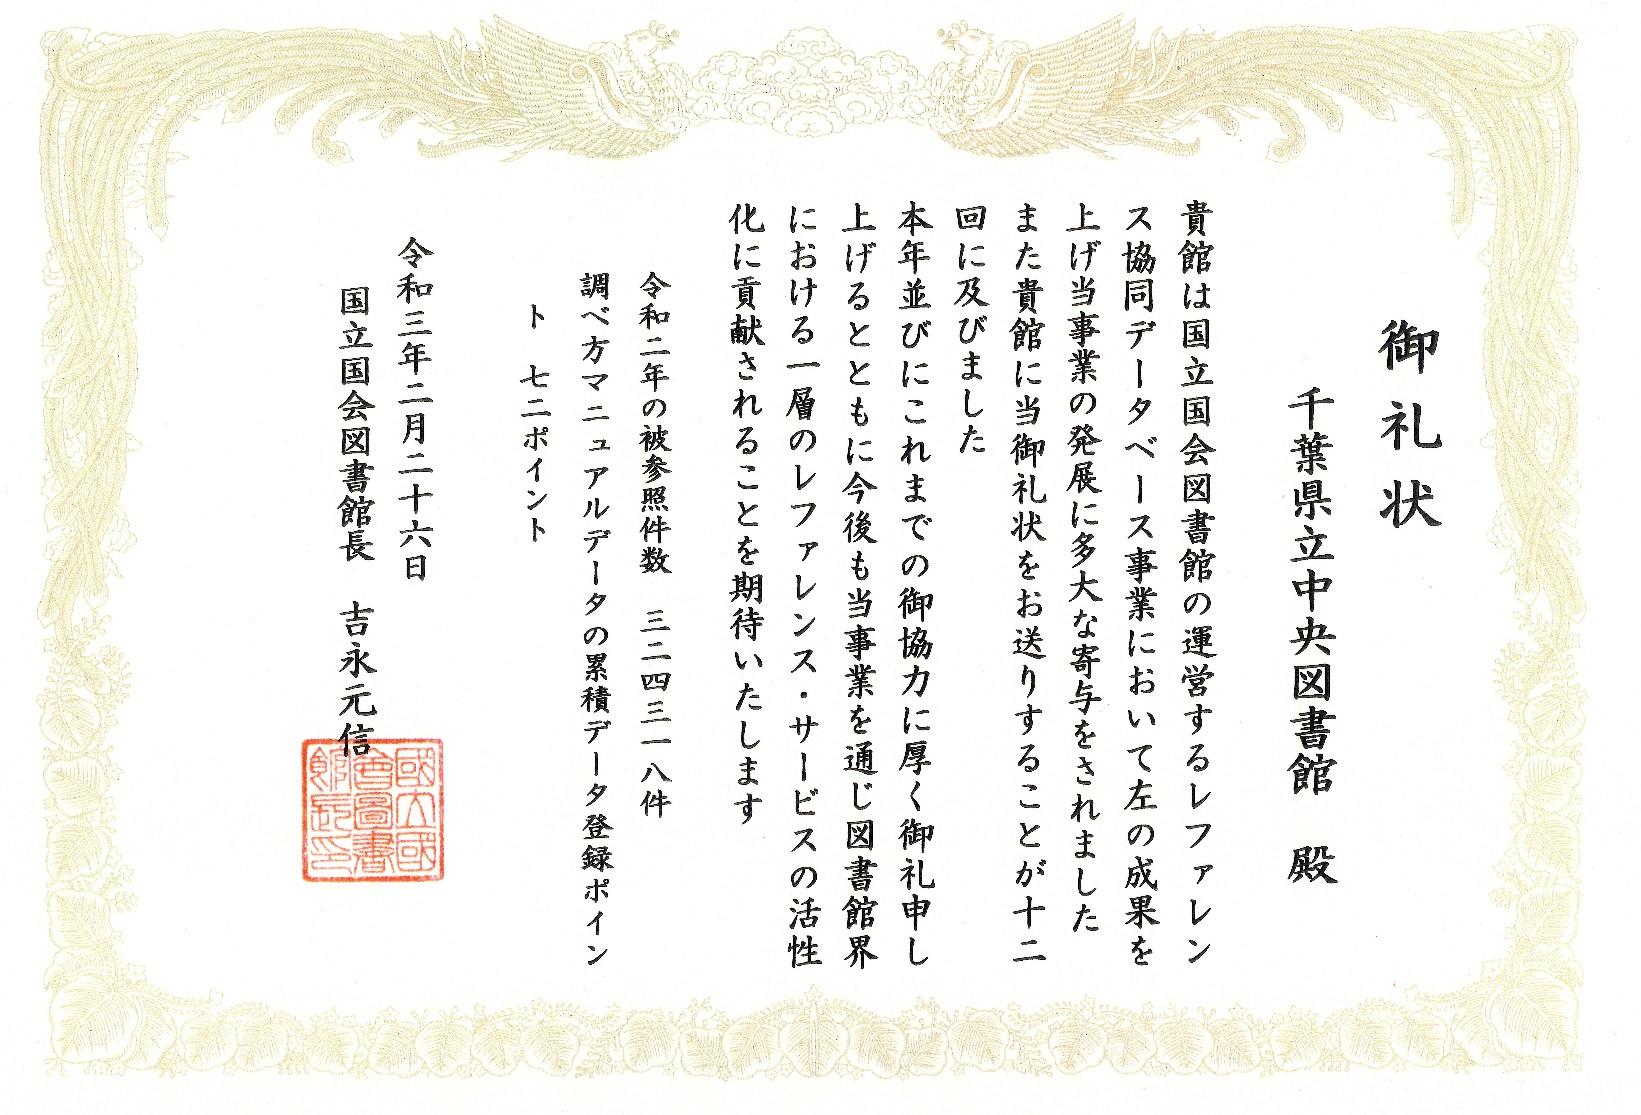 御礼状
千葉県立中央図書館 殿
貴館は国立国会図書館の運営するレファレン
ス協同データベース事業において左の成果を
上げ当事業の発展に多大な寄与をされました
また貴館に当御礼状をお送りすることが十二
回に及びました
本年並びにこれまでの御協力に厚く御礼申し
上げるとともに今後も当事業を通じ図書館界
における一層のレファレンス・サービスの活性
化に貢献されることを期待いたします
令和二年の被参照件数 三二四三一八件
調べ方マニュアルデータの累積データ登録ポイン
ト 七二ポイント
令和三年二月二十六日
国立国会図書館長 吉永元信
國立國
會圖書
館長印